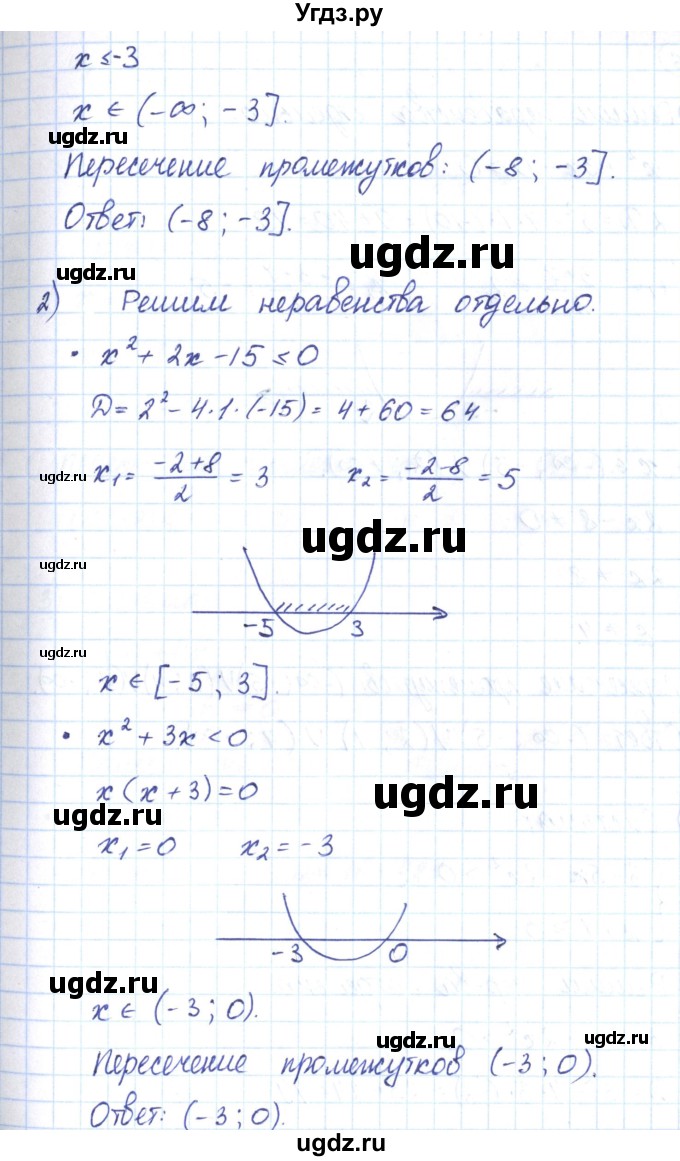 Угдз.ру
x ≤ -3
x ∈ (-∞; -3].
ugdz.ru
Пересечение промежутков: (-8; -3].
ugdz.ru
Ответ: (-8; -3].
ugdz.ru
ugdz.ru
2) Решим неравенства отдельно.
• x² + 2x - 15 ≤ 0
D = 2² - 4·1·(-15) = 4 + 60 = 64
ugdz.ru x₁ = (-2+8)/2 = 3 x₂ = (-2-8)/2 = 5
ugdz.ru
ugdz.ru
-5 3
ugdz.ru
x ∈ [-5; 3].
• x² + 3x < 0
ugdz.ru
x(x + 3) = 0
ugdz.ru
ugdz.ru
x₁ = 0 x₂ = -3
-3 0
ugdz.ru
x ∈ (-3; 0).
ugdz.ru
ugdz.ru
Пересечение промежутков (-3; 0).
ugdz.ru
Ответ: (-3; 0).
ugdz.ru